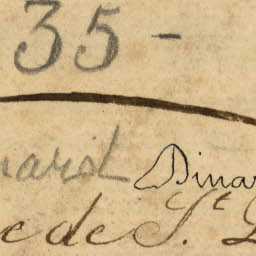 35 -
nard Dinar
e de St. D